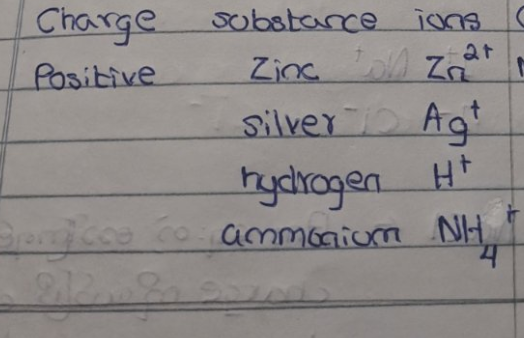 Charge substance ions
Positive Zinc Zn²⁺
silver Ag⁺
hydrogen H⁺
ammonium NH₄⁺